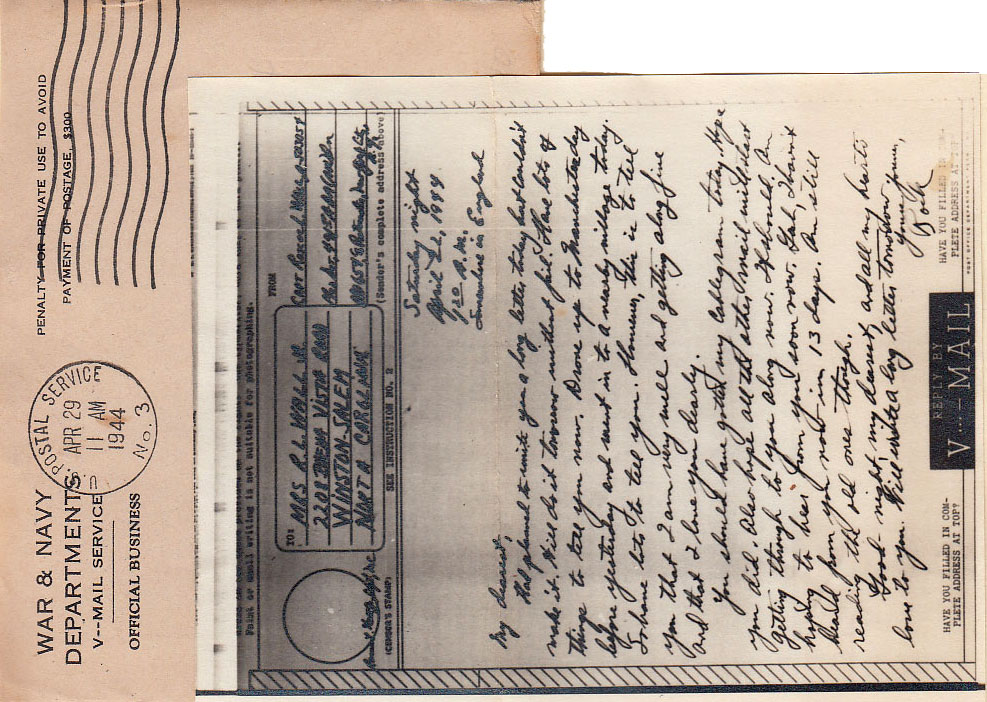 WAR & NAVY
DEPARTMENTS
V--MAIL SERVICE
OFFICIAL BUSINESS
U.S. POSTAL SERVICE
APR 29
11 AM
1944
No. 3
PENALTY FOR PRIVATE USE TO AVOID
PAYMENT OF POSTAGE, $300
Faint or small writing is not suitable for photographing.
TO:
MRS R. L. WALL JR.
2208 BUENA VISTA ROAD
WINSTON-SALEM
NORTH CAROLINA
SEE INSTRUCTION NO. 2
(CENSOR'S STAMP)
FROM
(Sender's complete address above)
Saturday night
April 22, 1944
9:20 P.M.
Somewhere in England
My dearest,
Had planned to write you a long letter today but couldn't
make it. Will do it tomorrow without fail. Have lots of
things to tell you now. Drove up to Manchester day
before yesterday and went in to a nearby village today.
So have lots to tell you. However, this is to tell
you that I am very well and getting along fine
and that I love you dearly.
You should have gotten my cablegram today. Hope
you did. Also hope all the other mail will start
getting through to you along now. It should. Am
hoping to hear from you soon now. Gosh, I haven't
heard from you now in 13 days. Am still
reading the old ones though.
Good night, my dearest, and all my heart's
love to you. Will write a long letter tomorrow.
Bob
HAVE YOU FILLED IN COM-
PLETE ADDRESS AT TOP?
REPLY BY
V---MAIL
HAVE YOU FILLED IN COM-
PLETE ADDRESS AT TOP?
POST OFFICE DEPARTMENT